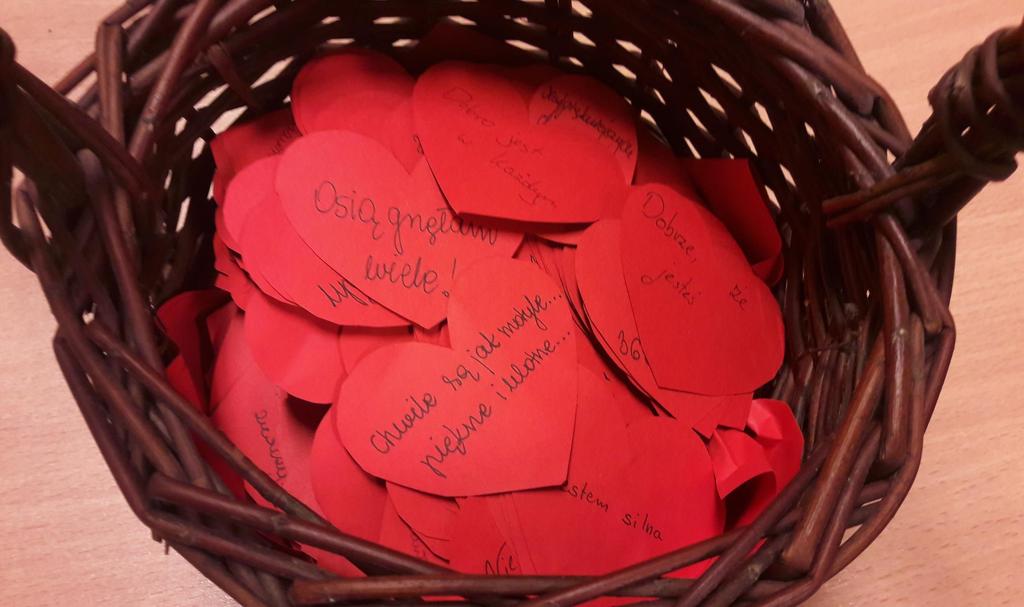 Dobro jest
w każdym
Osiągnęłam
wiele!
Dobrze,
że
jesteś
36
chwile są jak motyle...
piękne i ulotne...
jestem silna
Nie